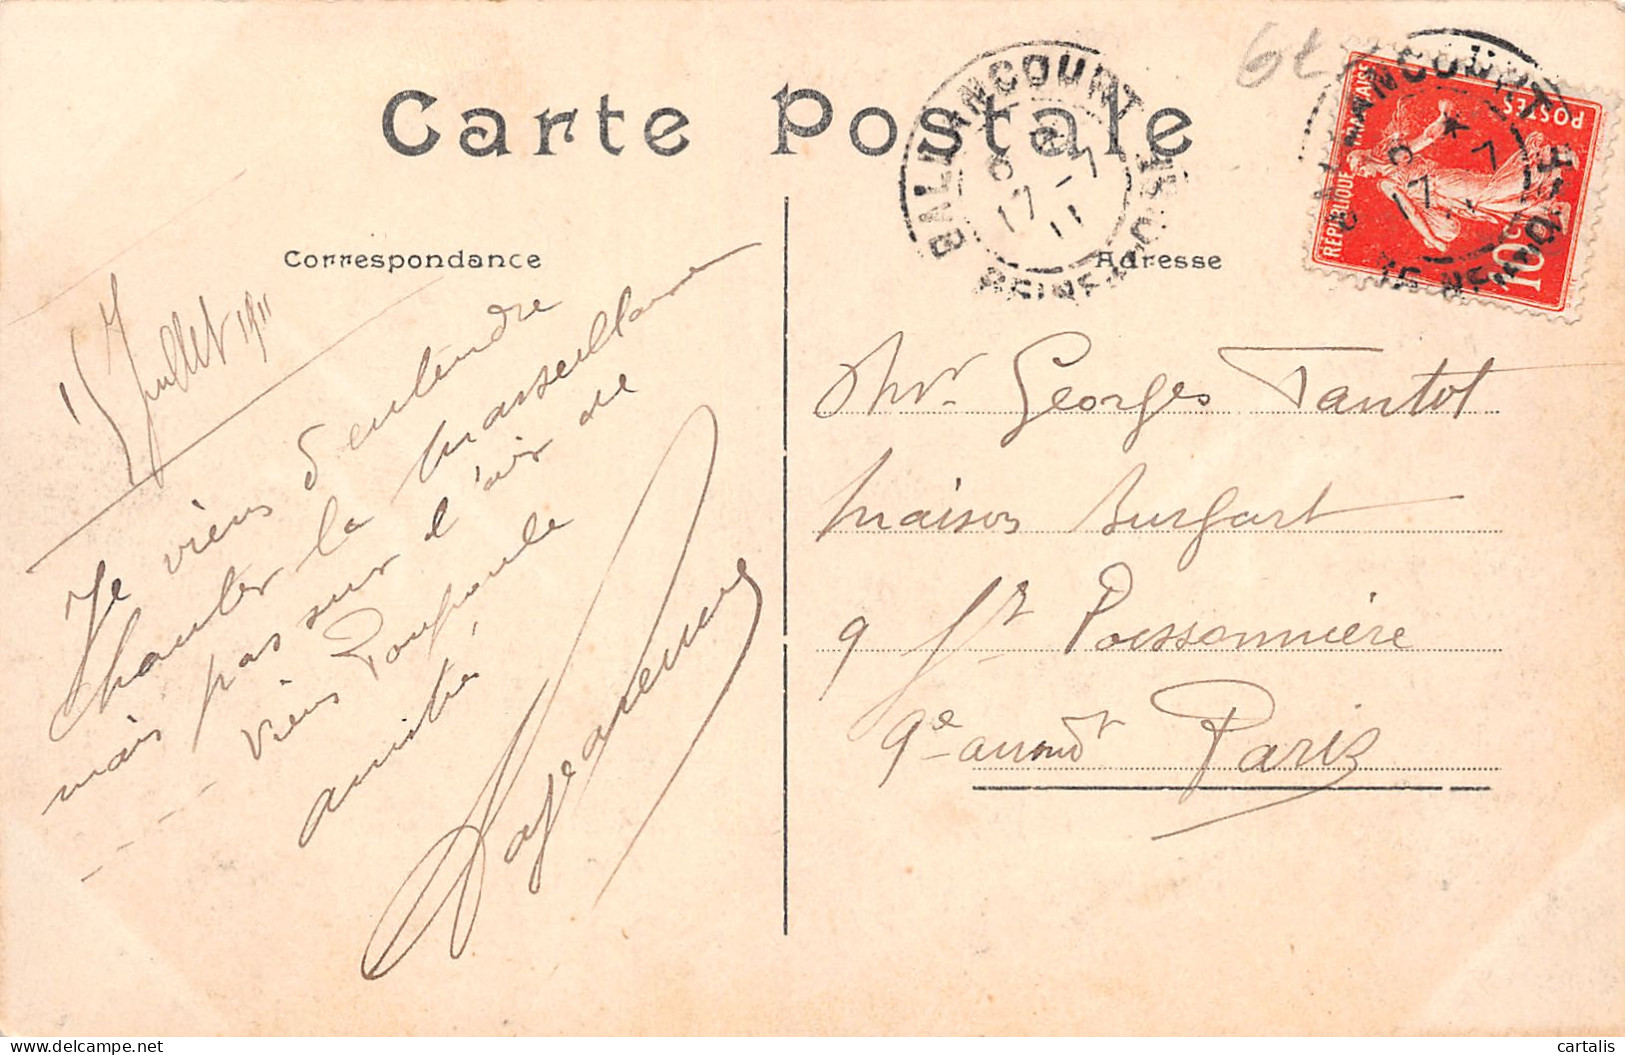 Carte Postale
Correspondance
Adresse
BALLANCOURT
SEINE-ET-OISE
17 -7
11
REPUBLIQUE FRANÇAISE
POSTES
10 C
17 Juillet 1911
Je viens d'entendre
chanter la Marseillaise
mais pas sur l'air de
---- Viens Poupoule
amitié
Mr Georges Tantot
maison Burgart
9 Poissonnière
9e arrondt Paris
delcampe.net
cartalis